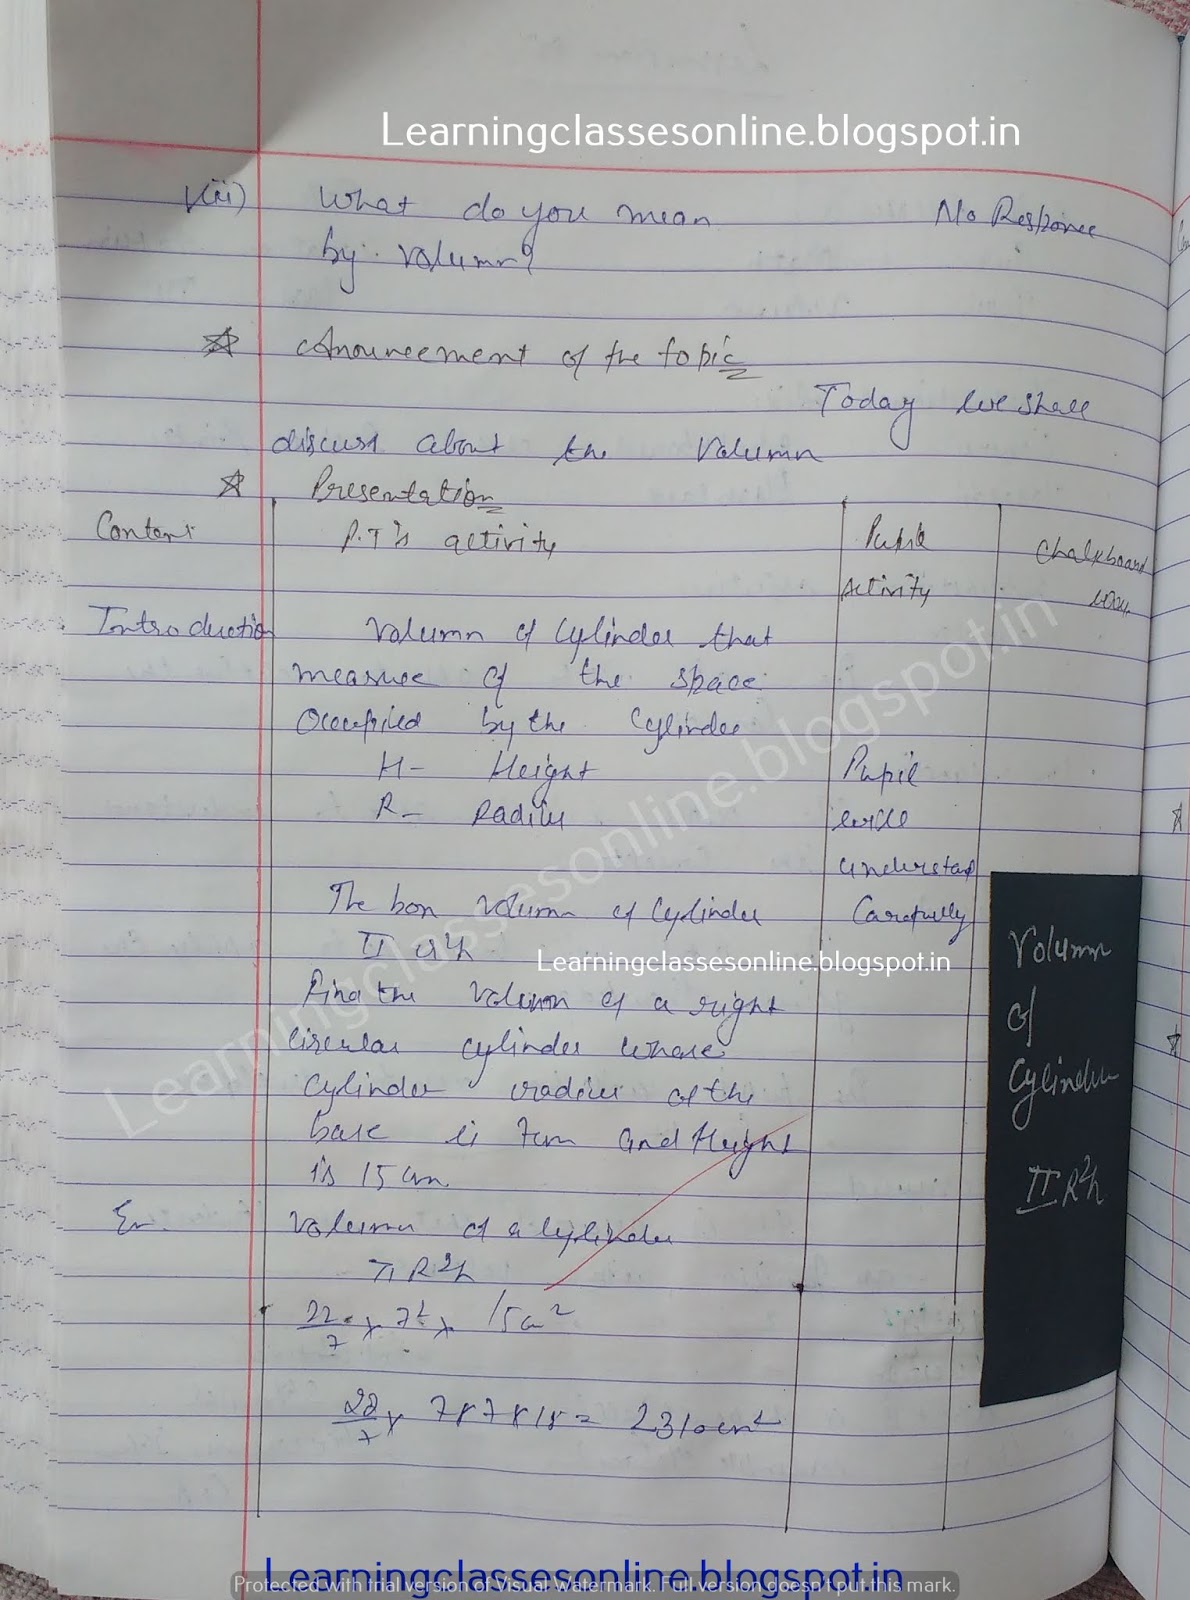 Learningclassesonline.blogspot.in
Viii) What do you mean No Responce
by volumn?
Anouncement of the topic
Today we shall
discuss about the Volumn
Presentation
Content P.T's activity Pupil Activity Chalkboard work
Introduction Volumn of Cylinder that
measure of the space
Occupied by the Cylinder
H- Height
R- Radius
Pupil will understand Carefully
The volumn of Cylinder
π r²h
Learningclassesonline.blogspot.in
Find the Volumn of a right
circular cylinder whose
Cylinder radius of the
base is 7cm and Height
is 15 cm.
Ex. Volumn of a cylinder
π R²h
22/7 x 7² x 15 cm²
22/7 x 7x7x15 = 2310cm²
Volumn
of
Cylinder
π R²h
Learningclassesonline.blogspot.in
Learningclassesonline.blogspot.in
Protected with trial version of Visual Watermark. Full version doesn't put this mark.